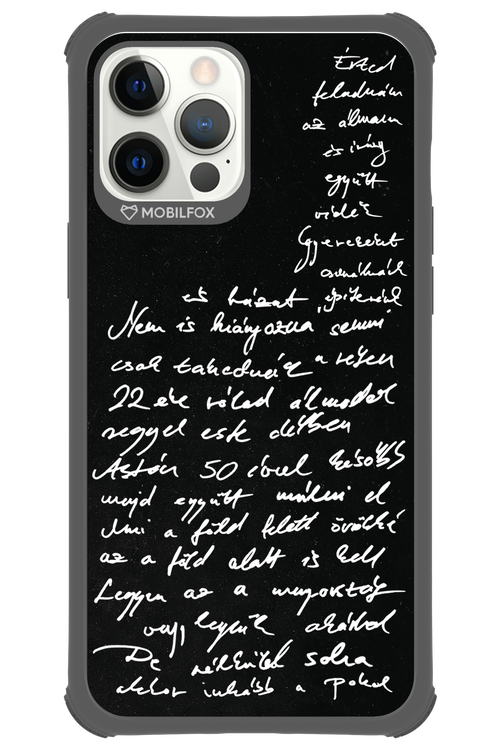 MOBILFOX
Érted
feladnám
az álmam
és így
együtt
vidék
Gyereket
csinálnánk
és házat építenénk
Nem is hiányozna semmi
csak takednék a vejen
22 éve rólad álmodok
reggel este délben
Aztán 50 évvel később
majd együtt múlni el
Ami a föld felett örökké
az a föld alatt is kell
Legyen az a mennyország
vagy legyünk akárhol
De nélküled soha
akkor inkább a Pokol